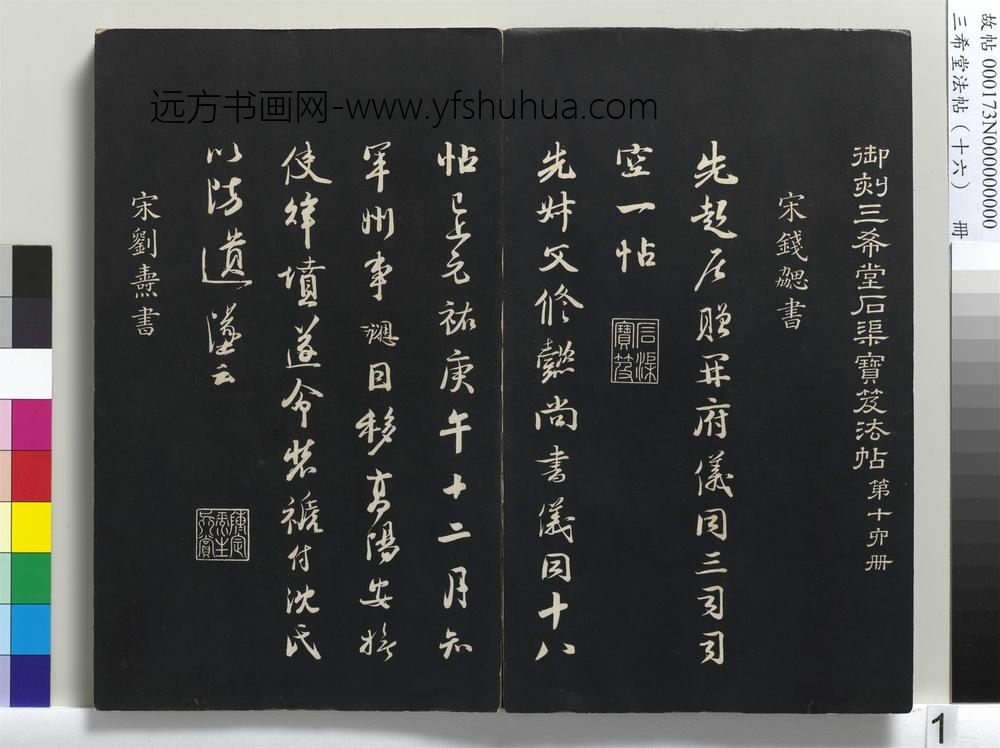 故帖 000173N000000000
三希堂法帖（十六） 册
远方书画网-www.yfshuhua.com
御刻三希堂石渠寶笈法帖 第十六册
宋錢勰書
先起居贈開府儀同三司司
空一帖
石渠寶笈
先叔父修懿尚書儀同十八
帖已上元祐庚午十二月知
軍州事勰自移高陽安撫
使拜墳遂令裝褫付沈氏
以防遺墜云
宋劉燾書
1